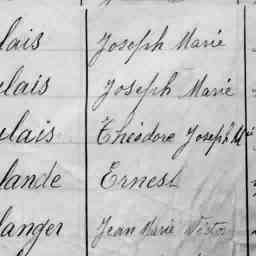 lais Joseph Marie
lais Joseph Marie
lais Théodore Joseph Mie
lande Ernest
langer Jean Marie Victor